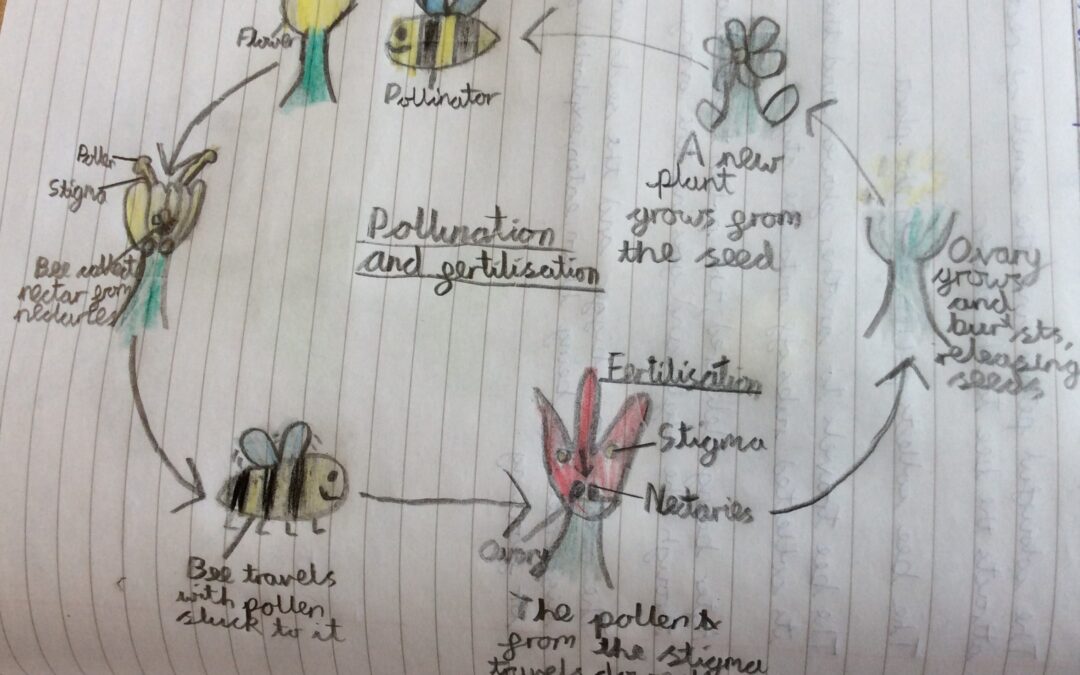 Flower
Pollinator
Pollen
Stigma
Bee collect
nectar from
nectaries
Pollination
and fertilisation
A new
plant
grows from
the seed
Ovary
grows
and
bursts,
releasing
seeds
Fertilisation
Stigma
Nectaries
Ovary
Bee travels
with pollen
stuck to it
The pollen
from the stigma
travels down